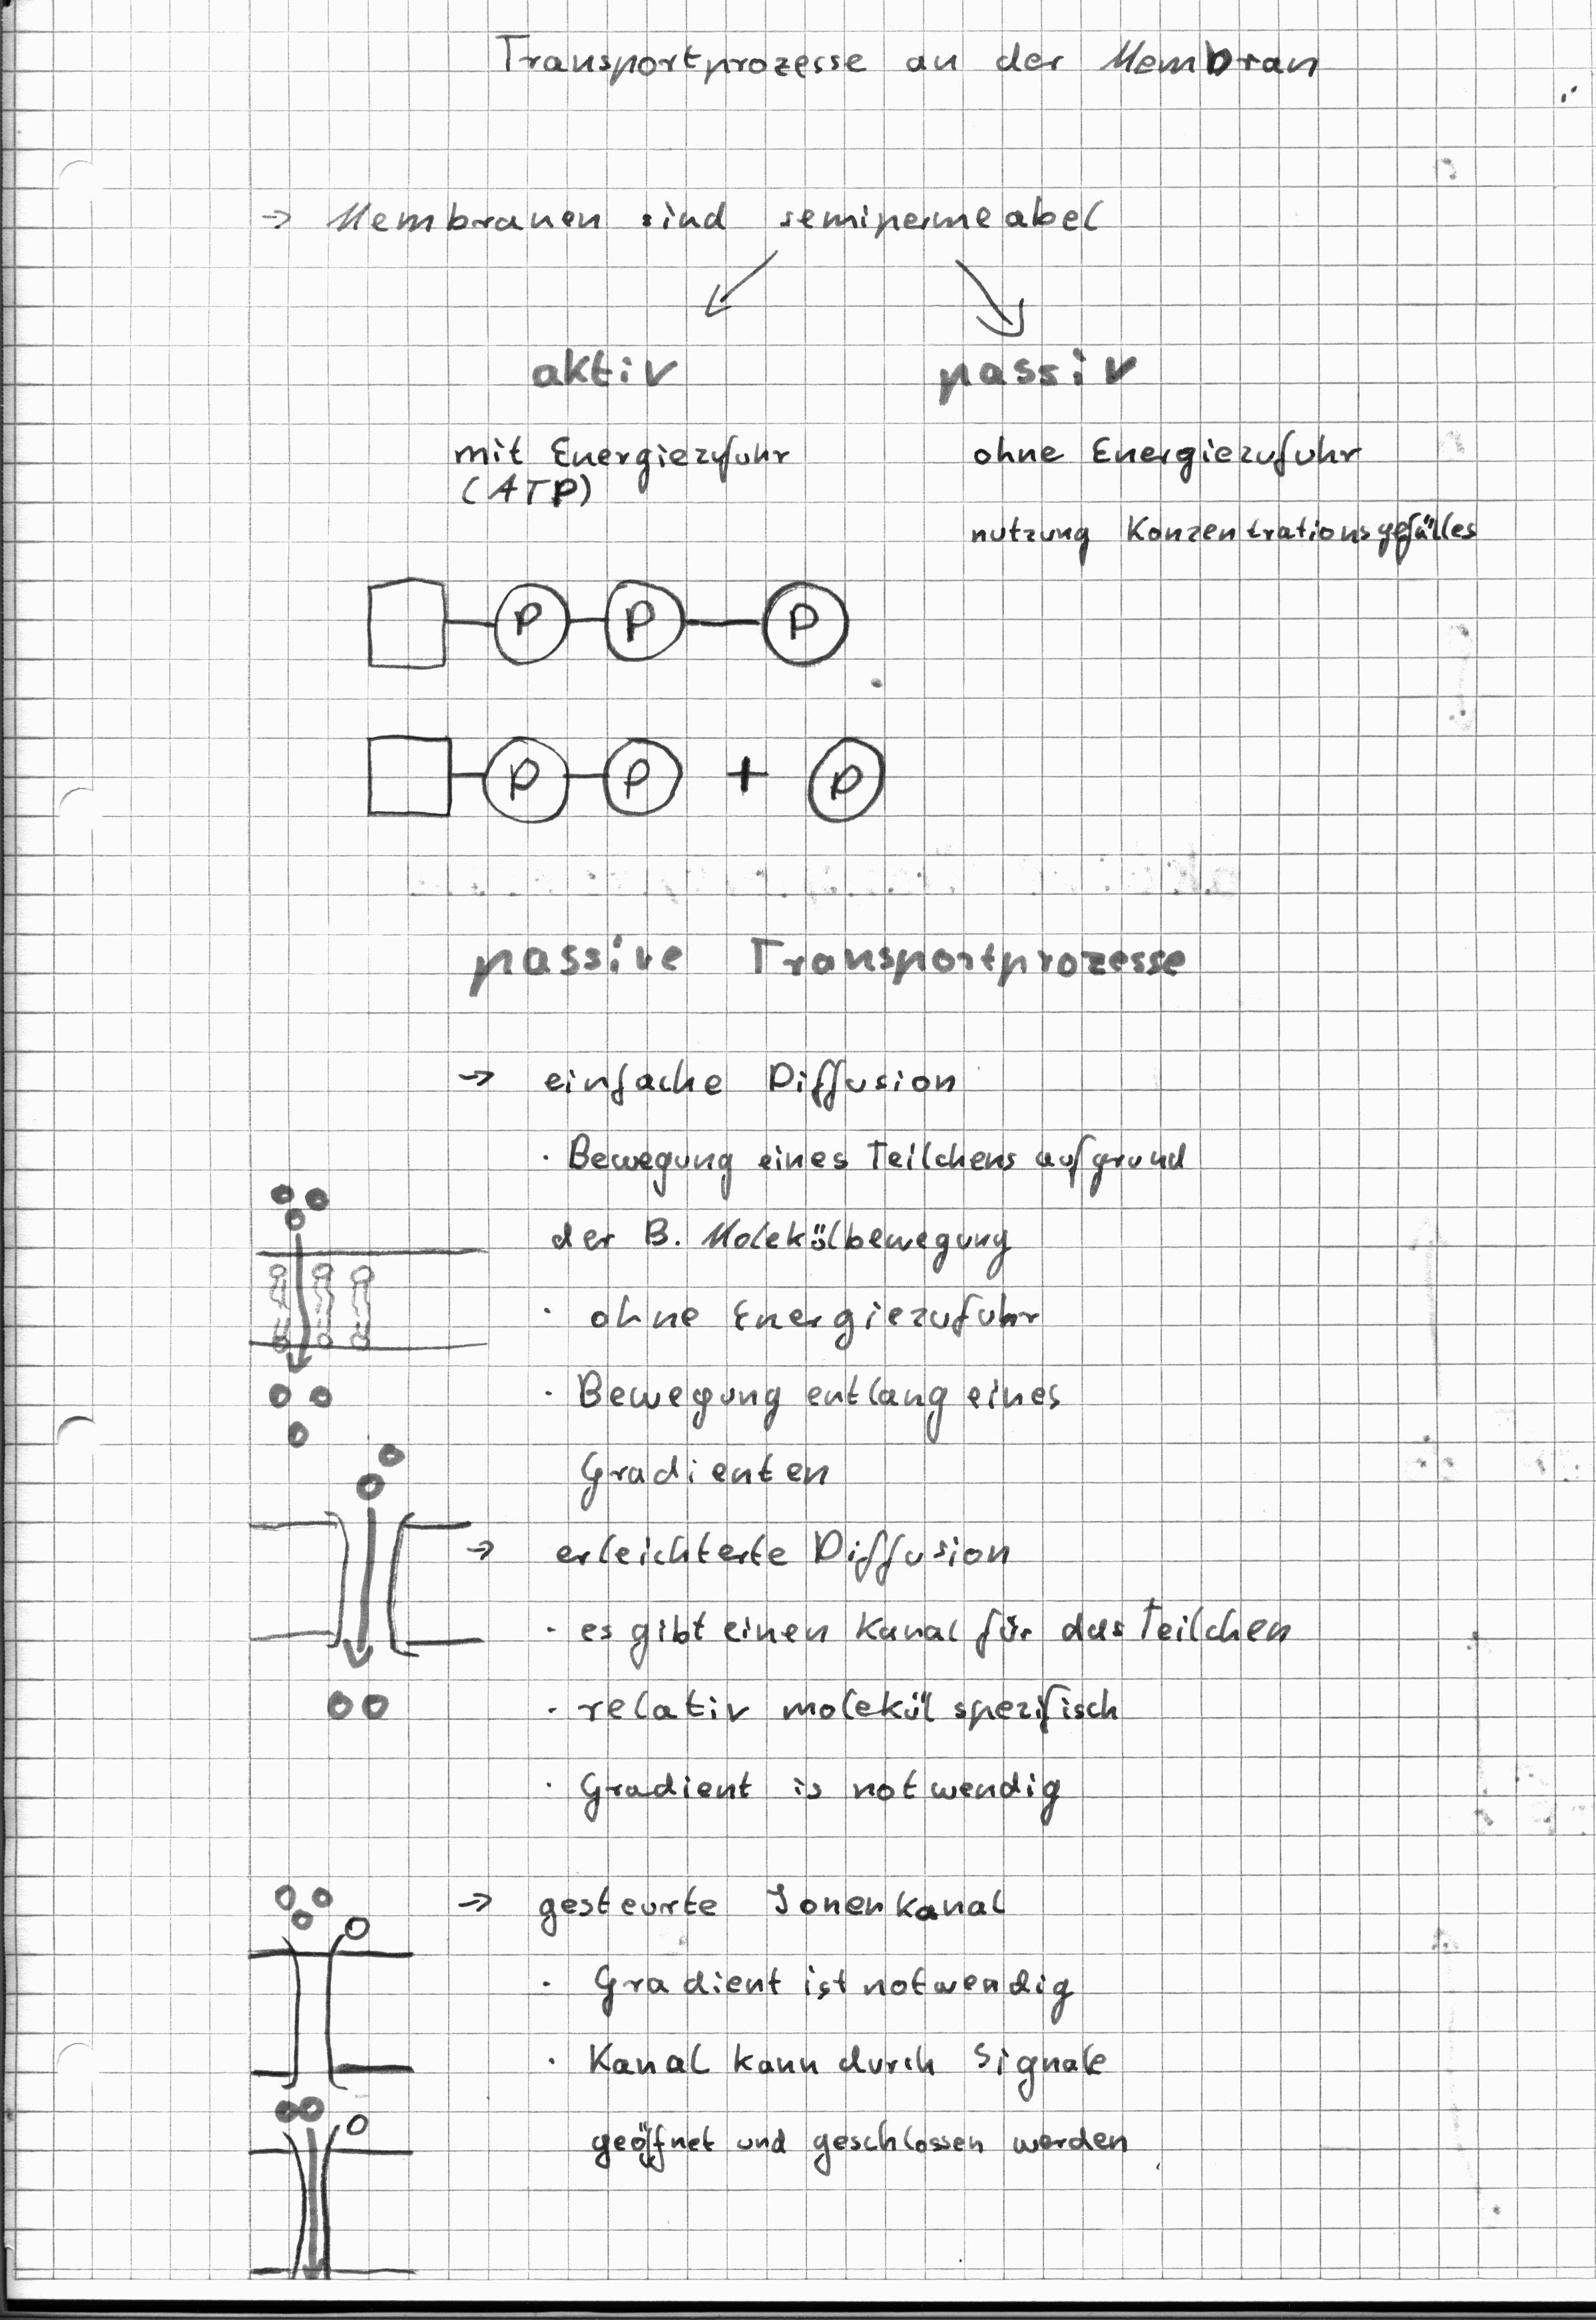 Transportprozesse an der Membran
→ Membranen sind semipermeabel
aktiv passiv
mit Energiezufuhr ohne Energiezufuhr
(ATP)
nutzung Konzentrationsgefälles
P P P
P P + P
passive Transportprozesse
→ einfache Diffusion
· Bewegung eines Teilchens aufgrund
der B. Molekülbewegung
· ohne Energiezufuhr
· Bewegung entlang eines
Gradienten
→ erleichterte Diffusion
· es gibt einen Kanal für das Teilchen
· relativ molekül spezifisch
· Gradient is notwendig
→ gesteurte Ionenkanal
· Gradient ist notwendig
· Kanal kann durch Signale
geöffnet und geschlossen werden